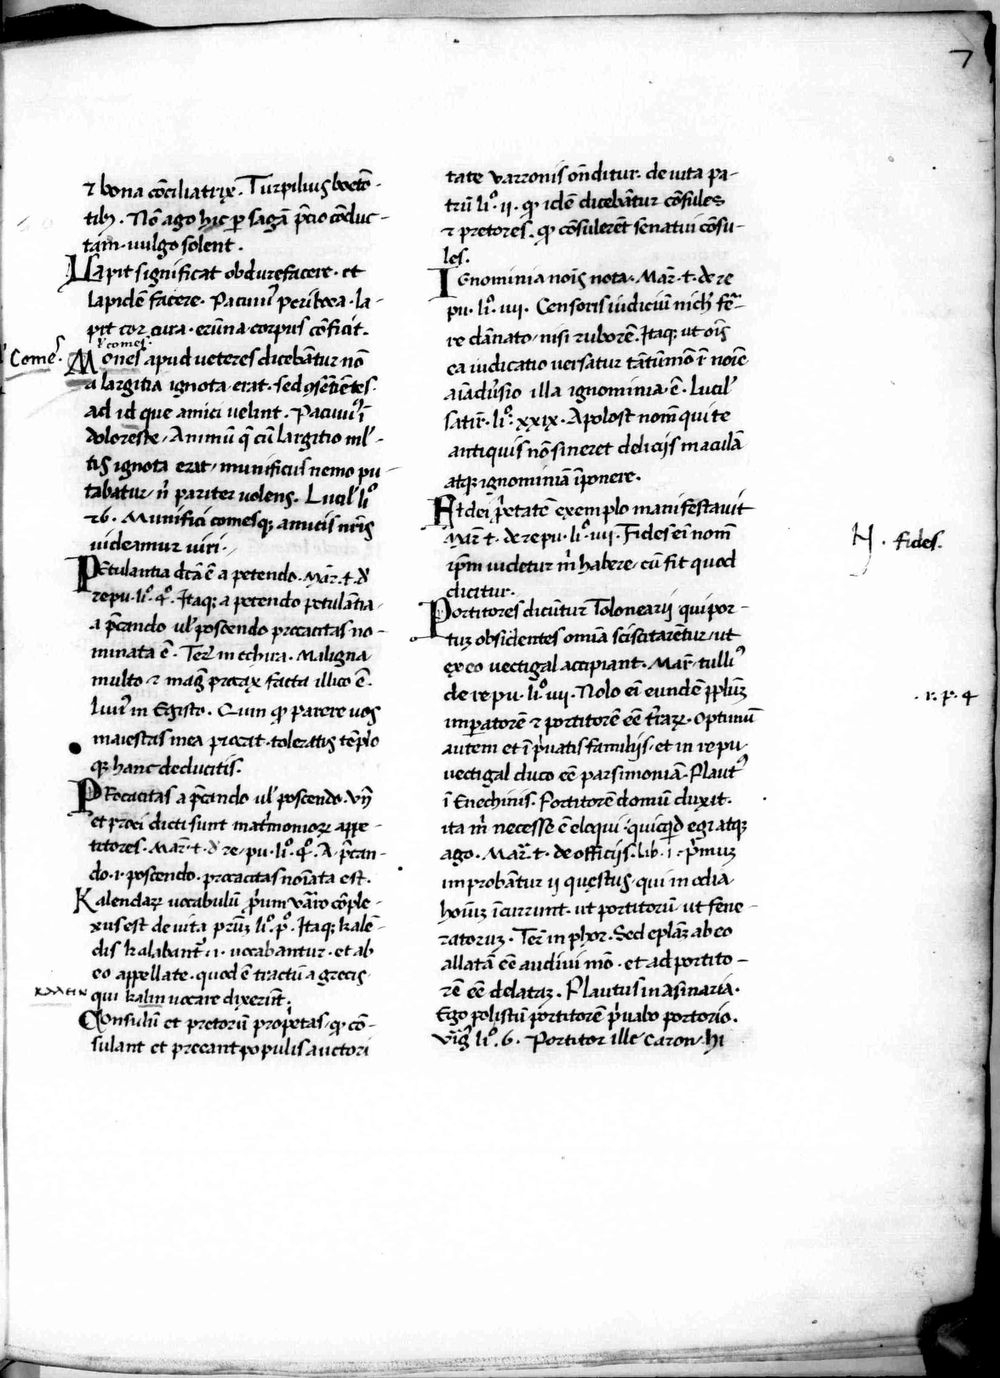 7
⁊ bona cōciliatrix. Turpilius boetō-
tib9. Nō ago hic ꝑ sagā p̄cio cōduc-
tam. uulgo solent.
Lapit significat obdurefacere. et
lapidē facere. Pacuui9 periboea. la-
pit cor cura. erūna corpus cōficit.
comes
Comes.
Mones apud ueteres dicebātur nō
a largitia ignota erat. sed ɔsētiētes
ad id que amici uelint. Pacuui9 ī
doloreste. Animū q̄ cū largitio ml'-
tis ignota erat. munificus nemo pu-
tabatur. n̄ pariter uolens. Lucil' liº
26. Munifici comesqꝫ amicis nr̄is
uideamur uiri.
Petulantia dc̄a ē a petendo. Mar̄. t. d'
repu. liº. 4º. Itaqꝫ a petendo petulātia.
a p̄cando ul' poscendo procacitas no-
minata ē. Ter̄ in echira. Maligna
multo ⁊ mag̃ procax facta illico ē.
Liui9 in Egisto. Quin qꝫ parere uos
maiestas mea procat. toleratis tēplo
qꝫ hanc deducitis.
Procacitas a p̄cando ul' poscendo. Vn̄
et proci dicti sunt mat'monioꝝ appe-
titores. Mar̄. t. d' re. pu. liº. 4º. A p̄can-
do. i. poscendo. procacitas noīata est.
Kalendaꝝ uocabulū p'mum Vārro cōple-
xus est de uita pr̄uꝫ liº. pº. Itaqꝫ kalē-
dis kalabant' .i. uocabantur. et ab
eo appellate. quod ē tractū a grecis
ΚΑΛΕΙΝ
qui kalin uocare dixer̄nt.
Consulū et pretorū prop'etas. qꝫ cō-
sulant et preeant populis auctori
tate Varronis ōnditur. de uita pa-
trū liº. ii. qꝫ idē dicebātur cōsules
⁊ pretores. qꝫ cōsulerēt senatui cōsu-
les.
Ignominia nois nota. Mar̄. t. de re
pu. liº. iiii. Censoris iudiciū nich' fe'-
re dānato. nisi ruborē. Itaqꝫ ut oīs
ea iudicatio uersatur tātūmō ī noīe
aīaduersio illa ignominia ē. Lucil'
satir̄. liº. xxix. Apolost nom̄ qui te
antiquis nō sineret deliciis maculā
atqꝫ ignominiā īponere.
Fidei p'etatē exemplo manifestauit
Mar̄ t. de repu. liº. iiii. Fides ei nom̄
ip̄m uidetur m' habere. cū fit quod
dicitur.
H. fides.
Portitores dicūtur Tolonearii qui por-
tus obsidentes omīa sciscitarētur. ut
ex eo uectigal accipiant. Mar̄. tulli9
de re pu. liº. iiii. Nolo ei eundē pp̄luꝫ
imꝑatorē ⁊ portitorē eē t'raꝝ. Optimū
.r. p. 4
autem et ī p'uatis familiis. et in re pu.
uectigal duco eē parsimoniā. Plaut9
ī Enechinis. Portitorē domū duxit.
ita m' necesse ē eloqui. quicqd egi atqꝫ
ago. Mar̄. t. de officiis. lib. i. p'muꝫ
improbātur ii questus. qui in odia
hoīuꝫ īcurrunt. ut portitorū. ut fene-
ratoruꝫ. Ter̄ in phor. Sed eplāꝫ ab eo
allatā eē audiui mō. et ad portito-
rē eē delataꝫ. Plautus in asinaria.
Ego polistū portitorē p'uabo portorio.
Virḡ. liº. 6. Portitor ille caron. hi